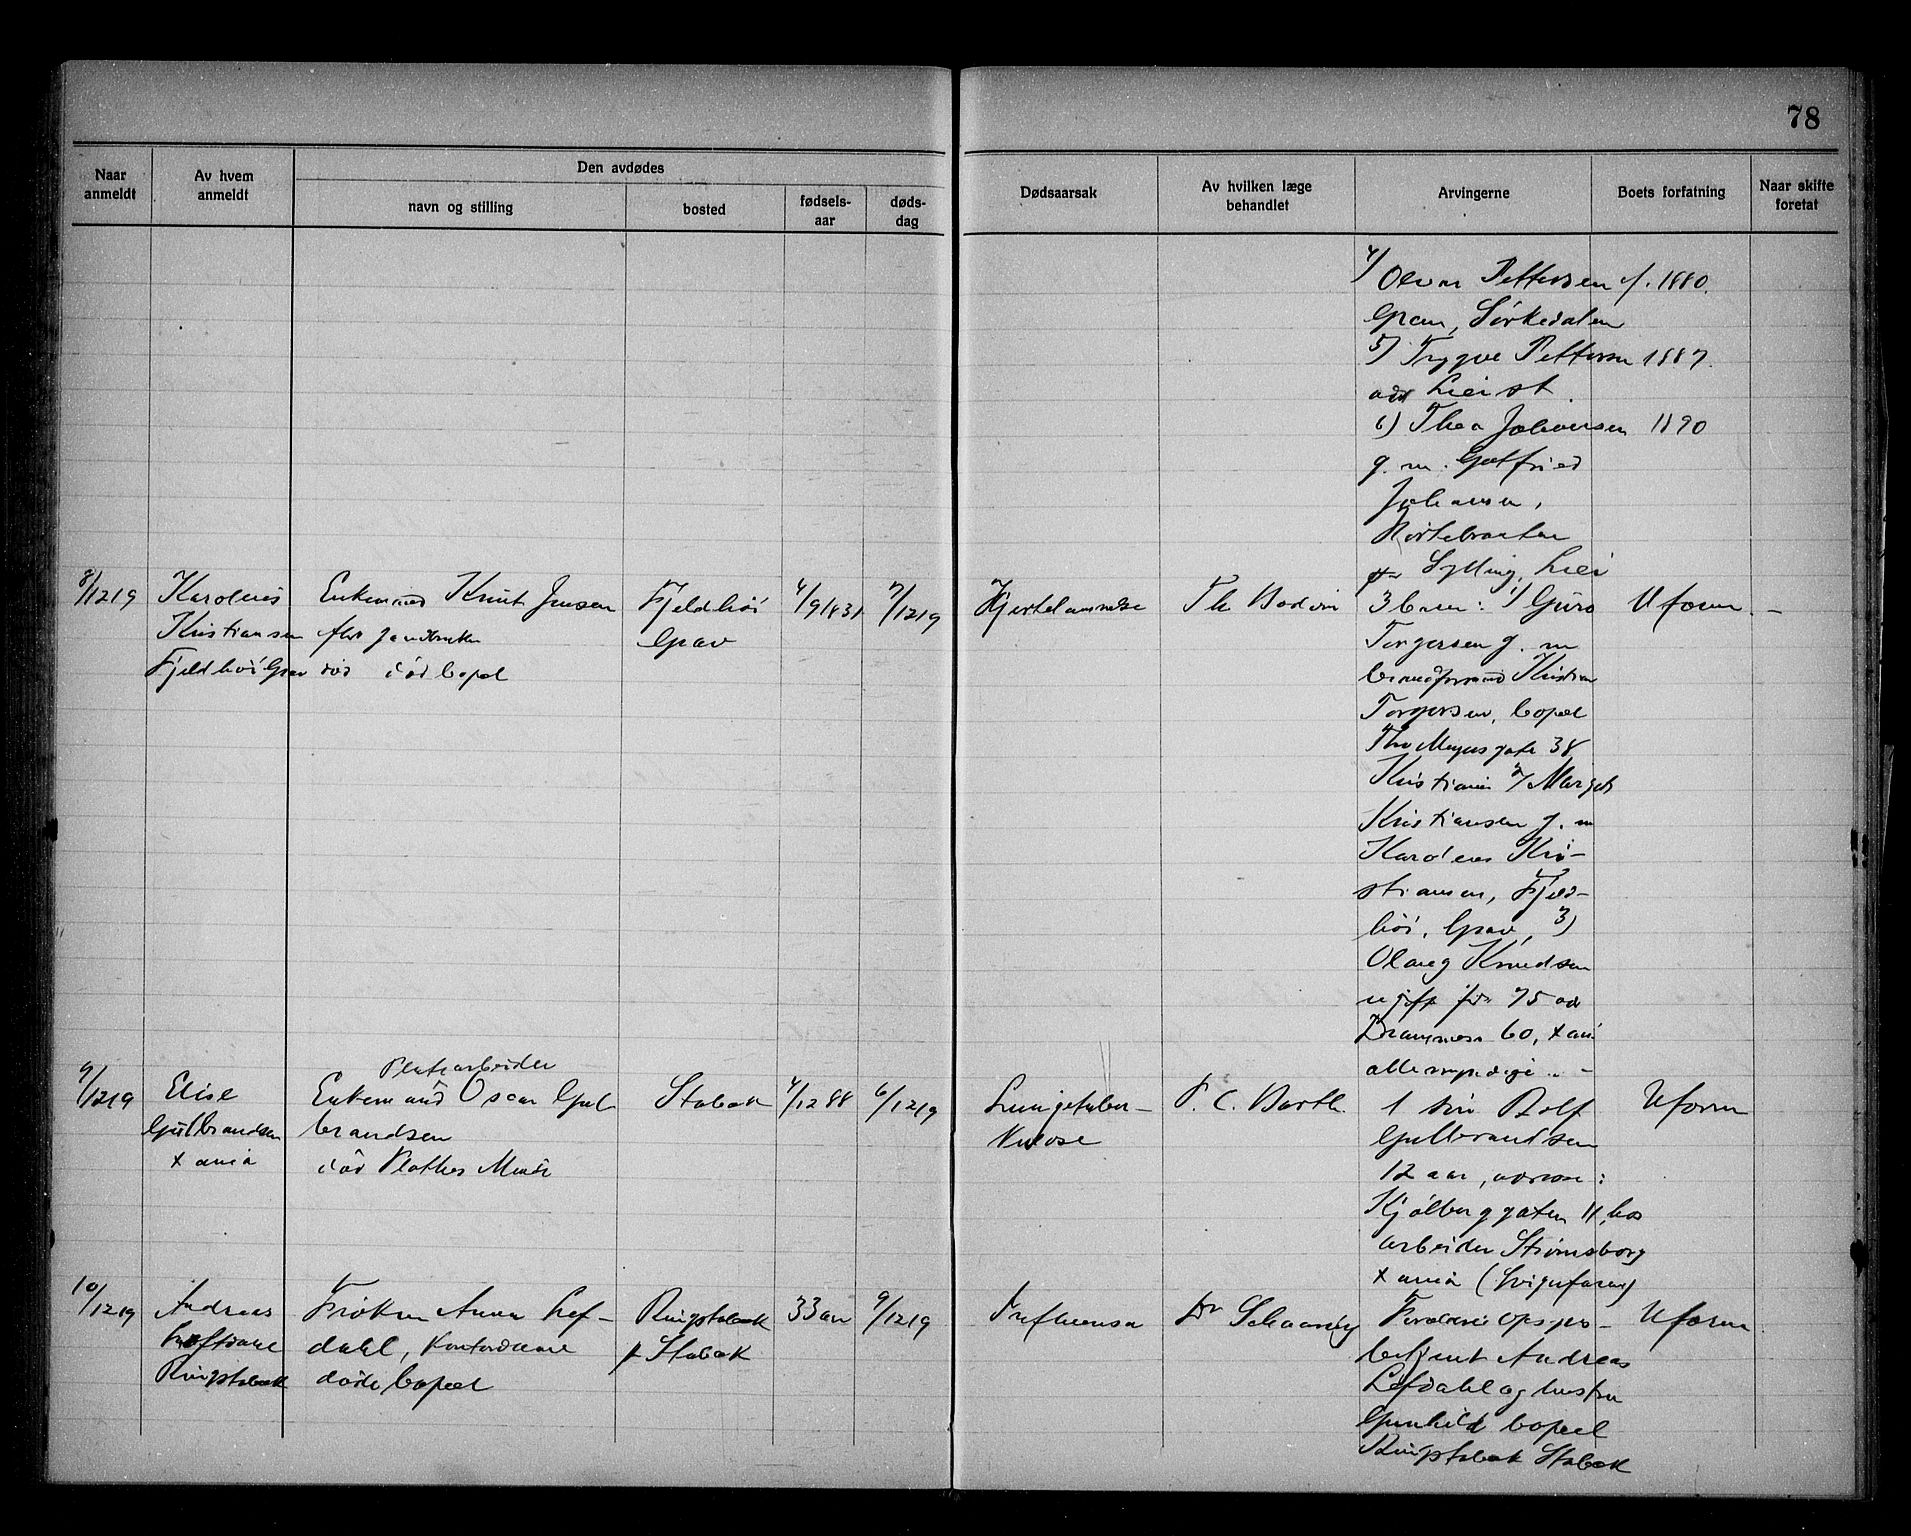 78
Naar anmeldt
Av hvem anmeldt
Den avdødes
navn og stilling
bosted
fødsels-aar
døds-dag
Dødsaarsak
Av hvilken læge behandlet
Arvingerne
Boets forfatning
Naar skifte foretat
4) Pettersen f. 1880.
Græn, Sørkedalen
5) Trygve Pettersen 1887.
adr Lier st.
6) Thea Johansen 1890
g. m. Gotfried
Johansen,
Sylling, Lier
8/12 19
Karolius
Kristiansen
Fjeldhöi Grav
Enkemand Knut Jensen
död i öd bopel
Fjeldhöi
Grav
4/9 1831
7/12 19
Hjertelammelse
Th Bodvin
Uform. –
3 barn: 1) Guro
Torgersen g. m
Kristian
Torgersen, bopæl
Thv Meyers gate 38
Kristiania 2) Margit
Kristiansen g. m
Karolius Kri-
stiansen, Fjeld-
höi, Grav, 3)
Olava Knudsen
ugift
60, Xania
alle myndige. –
9/12 19
Elise
Gulbrandsen
Xania
Platearbeider
Enkemand Oscar Gul
brandsen
död Plathes Minde
Stabæk
4/12 88
6/12 19
Lungetuber-
kulose
P. C. Barth.
Uform
1 sön Rolf
Gulbrandsen
12 aar, adresse:
Kjölberggaten 11, hos
arbeider Strömsborg
Xania (Svigerfaren)
10/12 19
Andreas
Ringstabæk
Fröken Anna Lef-
dahl, Kontordame
döde bopæl
Ringstabæk
p Stabæk
33 aar
9/12 19
Influensa
Dr Schaaning
Uform
Forældre opsyns-
betjent Andreas
Lefdahl og hustru
Gunhild bopæl
Ringstabæk Stabæk